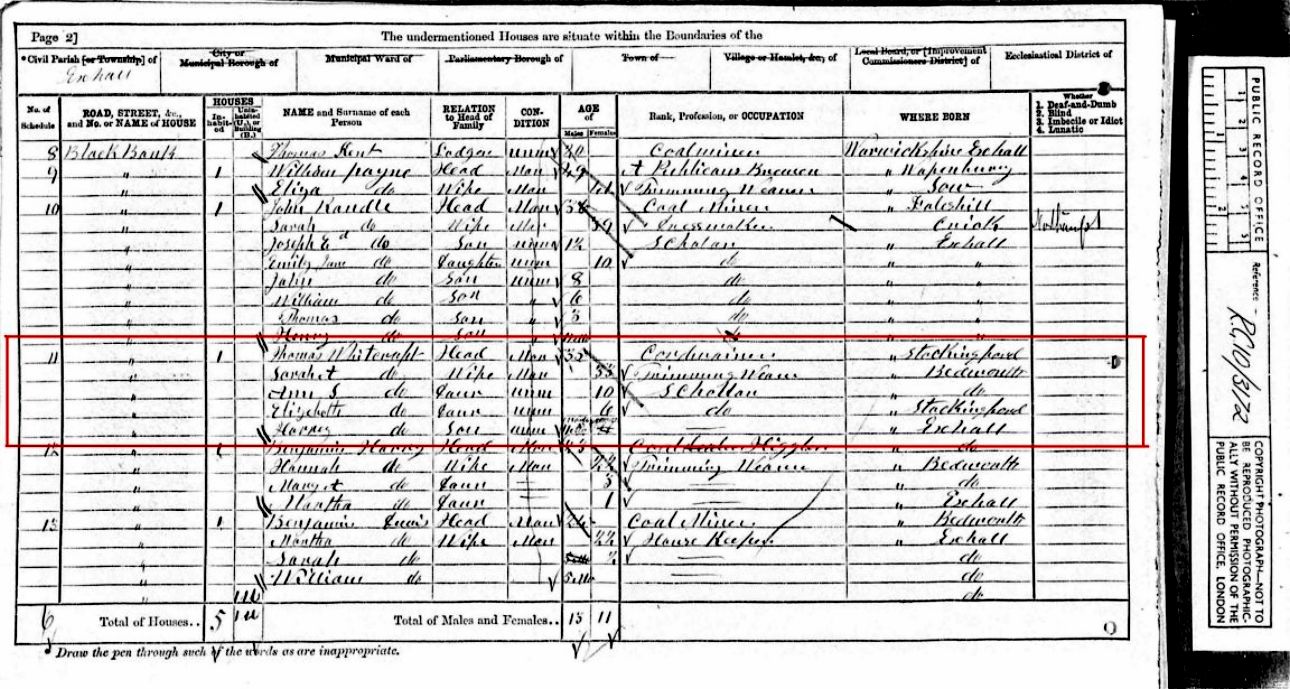 Page 2] The undermentioned Houses are situate within the Boundaries of the
*Civil Parish [or Township] of City or Municipal Borough of Municipal Ward of Parliamentary Borough of Town of Village or Hamlet, &c., of Local Board, or [Improvement Commissioners District] of Ecclesiastical District of
Exhall
No. of Schedule ROAD, STREET, &c., and No. or NAME of HOUSE HOUSES Inhabited Uninhabited (U.), or Building (B.) NAME and Surname of each Person RELATION to Head of Family CONDITION AGE of Males Females Rank, Profession, or OCCUPATION WHERE BORN Whether 1. Deaf-and-Dumb 2. Blind 3. Imbecile or Idiot 4. Lunatic
8 Black Bank Thomas Kent Lodger unm Coalminer Warwickshire Exhall
9 " 1 William Payne Head Mar 49 A Publicans " Wapenbury
" Eliza do Wife Mar Trimming Weaver " Sow
10 " 1 John Randle Head Mar Coal Miner " Foleshill
" Sarah do Wife Mar 39 Dressmaker Crick
" Joseph E do Son unm 12 Scholar " Exhall
" Emily Jane do Daughter unm 10 do " "
" John do Son unm 8 do " "
" William do Son " 6 do " "
" Thomas do Son " 3 do " "
" Henry do Son " "
11 " 1 Thomas Head Mar 35 Cordwainer " Stockingford
" Sarah A do Wife Mar 33 Trimming Weaver " Bedworth
" Ann S do Daur unm 10 Scholar " do
" Elizabeth do Daur unm 6 do " Stockingford
" Harry do Son unm " Exhall
12 " 1 Benjamin Harvey Head Mar 23 " do
" Hannah do Wife Mar 22 Trimming Weaver " Bedworth
" do Daur 3 " do
" Martha do Daur 1 Exhall
13 " 1 Benjamin Lewis Head Mar Coal Miner " Bedworth
" Martha do Wife Mar 22 House Keeper " Exhall
" Sarah do do
" William do do
" do
6 Total of Houses.. 5 Total of Males and Females.. 15 11
* Draw the pen through such of the words as are inappropriate.
PUBLIC RECORD OFFICE
Reference -
RG10/3172
COPYRIGHT PHOTOGRAPH—NOT TO
BE REPRODUCED PHOTOGRAPHIC-
ALLY WITHOUT PERMISSION OF THE
PUBLIC RECORD OFFICE, LONDON